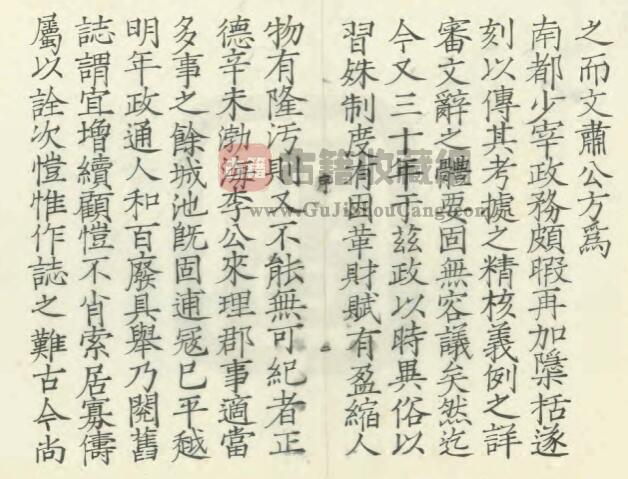 之而文肅公方爲
南都少宰政務頗暇再加檃括遂
刻以傳其考據之精核義例之詳
審文辭之體要固無容議矣然迄
今又三十年于茲政以時異俗以
習殊制度有因革財賦有盈縮人
物有隆污則又不能無可紀者正
德辛未渤海李公來理郡事適當
多事之餘城池旣固逋冦巳平越
明年政通人和百廢具舉乃閱舊
誌謂宜增續顧愷不肖索居寡儔
屬以詮次愷惟作誌之難古今尚
序
二
古籍 古籍收藏網
www.GuJiShouCang.com